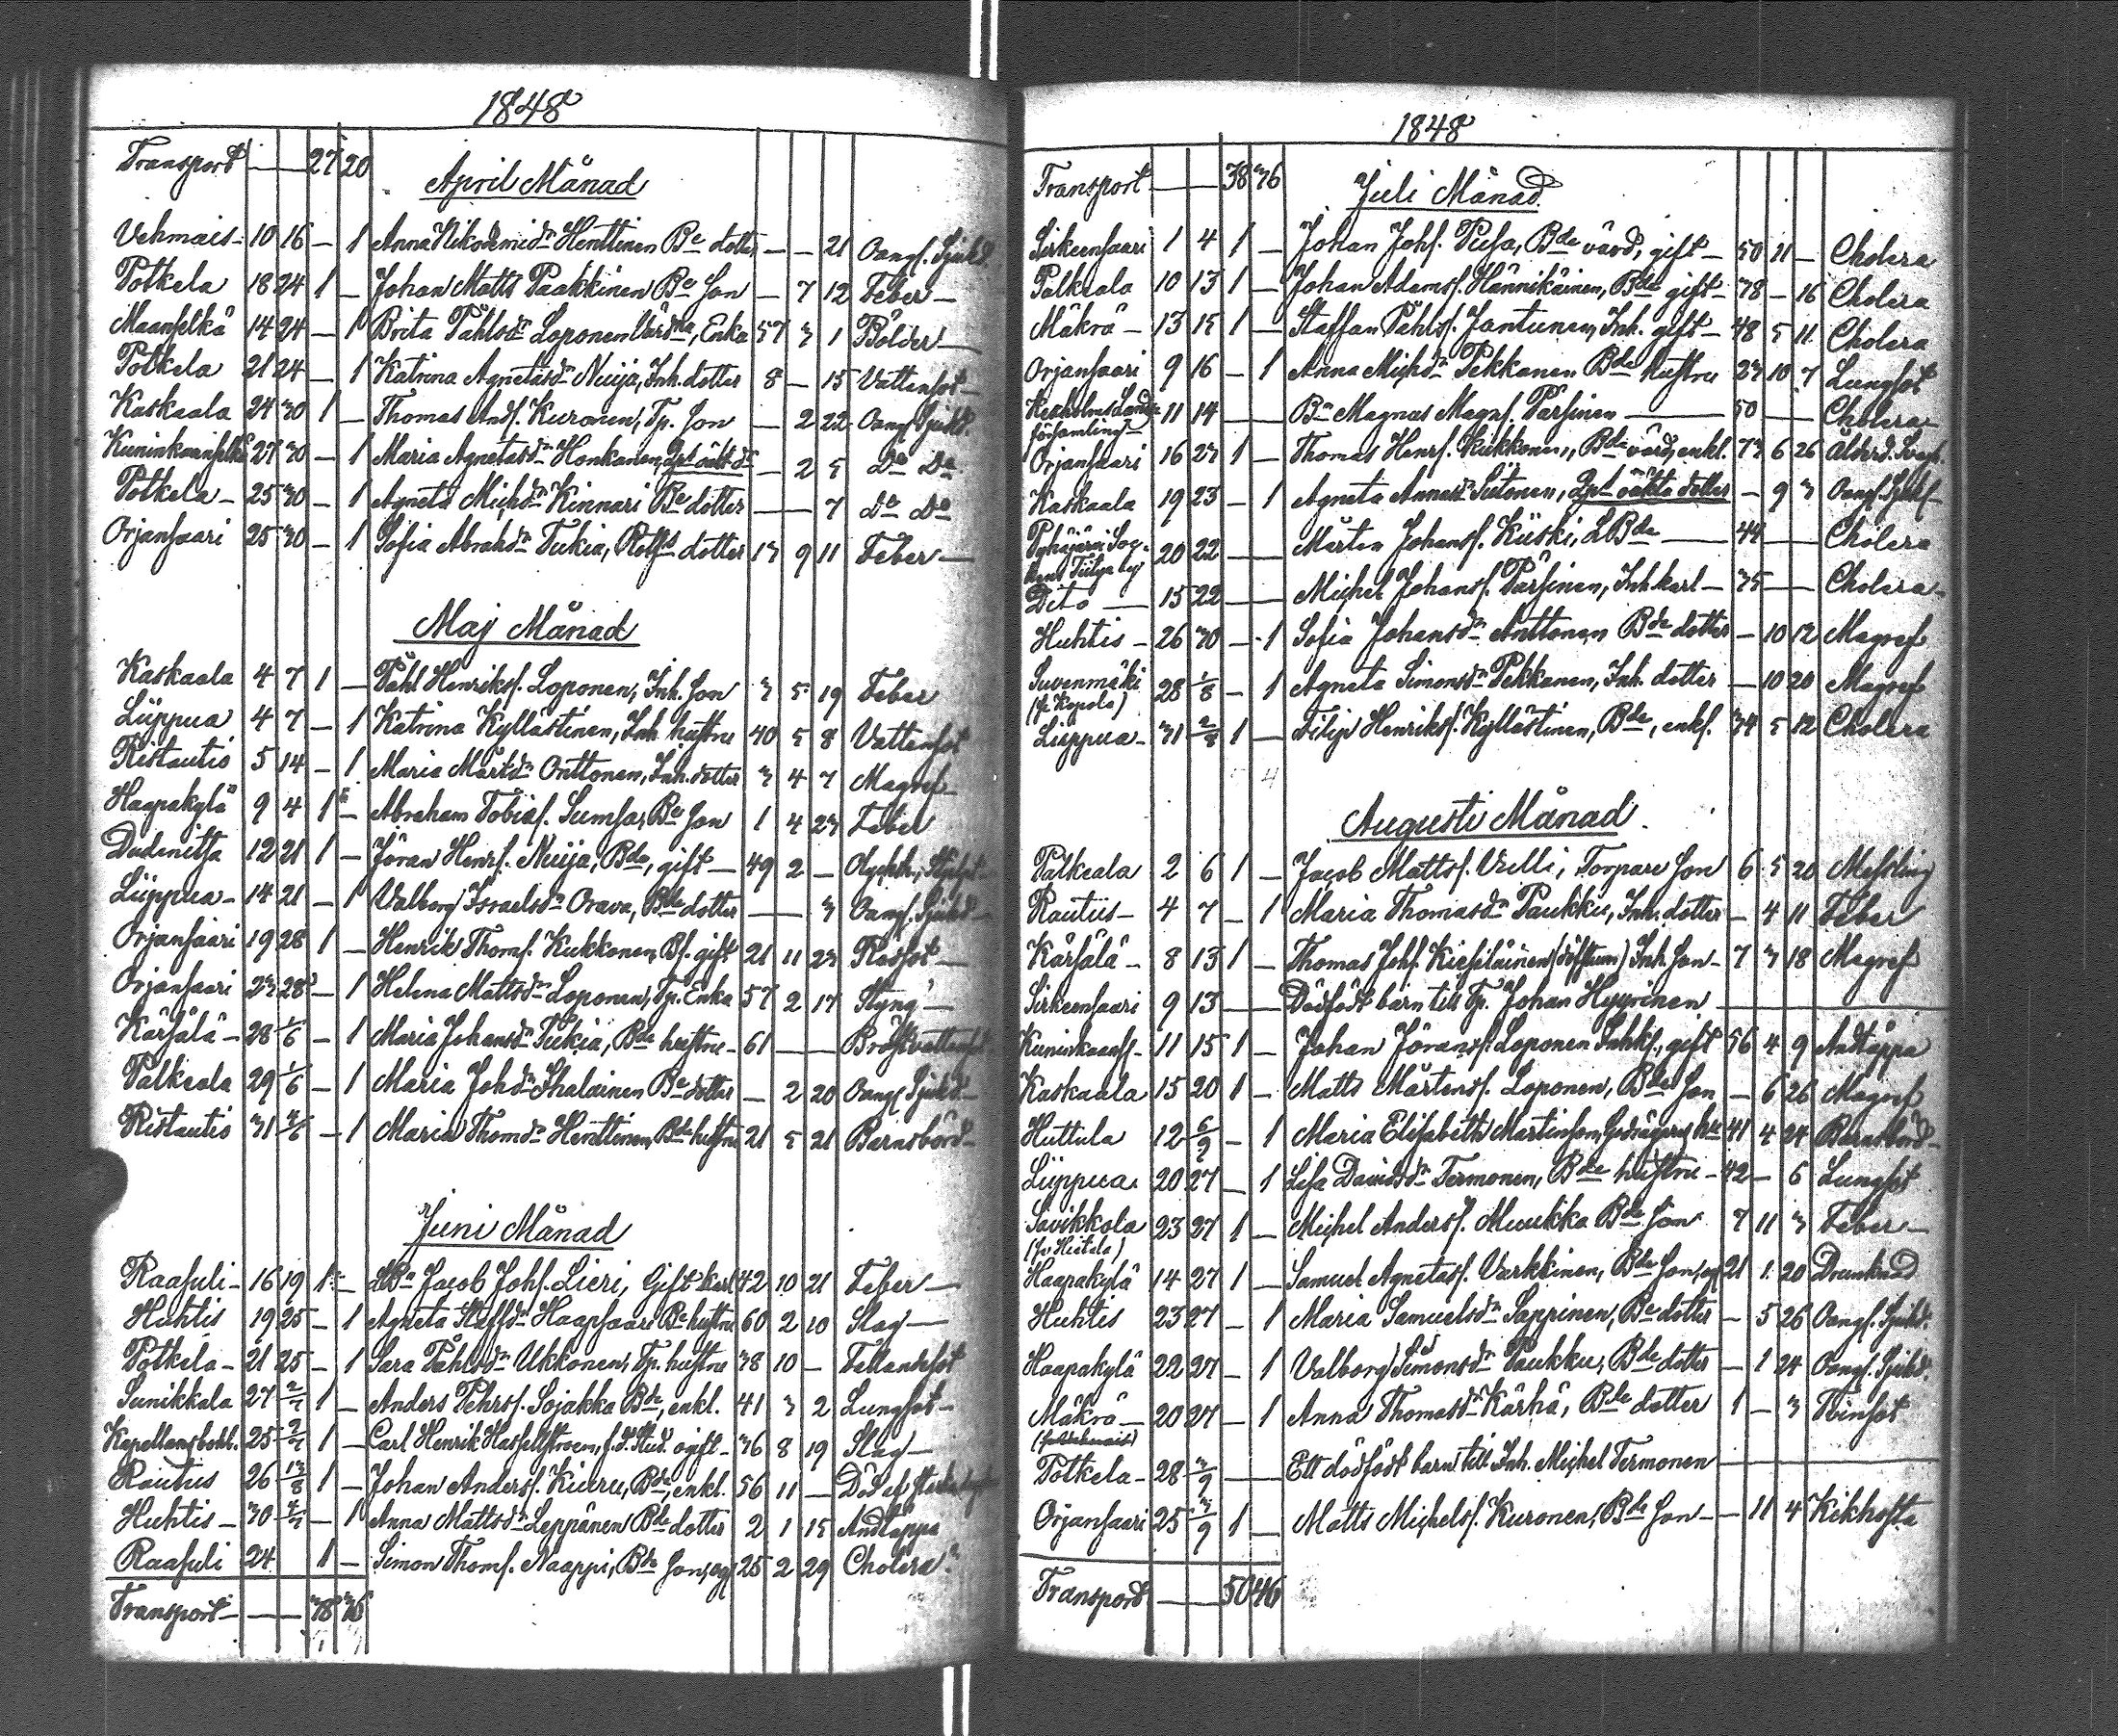 1848
Transport — — 27 20
April Månad
Vehmais- 10 16 — 1 Anna Nikodemidr Henttinen Be dotter — — 21 Oang. Sjukd.
Potkela 18 24 1 — Johan Matts Paakkinen Be Son — 7 12 Feber —
Maanselkä 14 24 — 1 Brita Påhlsdr Loponen Värdna, Enka 57 3 1 Bölder —
Potkela 21 24 — 1 Katrina Agnetasdr Nuija, Inh. dotter 8 — 15 Vattensot —
Kaskaala 24 30 1 — Thomas Ands. Kuronen, Tp. Son — 2 22 Oang. Sjukd.
Kuninkaanselkä 27 30 — 1 Maria Agnetasdr Honkanen, — 2 5 Do Do
Potkela — 25 30 — 1 Agneta Michdr Kinnari Be dotter — — 7 Do Do
Orjansaari 25 30 — 1 Sofia Abrahdr Tukia, dotter 13 9 11 Feber —
Maj Månad
Kaskaala 4 7 1 — Påhl Henriks. Loponen, Inh. Son 3 5 19 Feber
Liippua 4 7 — 1 Katrina Kyllästinen, Inh. hustru 40 5 8 Vattensot
Ristautio 5 14 — 1 Maria Mårtsdr Onttonen, Inh. dotter 3 4 7 Magref
Haapakylä 9 4 1 — Abraham Tobias. Sumsa, Be Son 1 4 23 Feber
Dudenitsa 12 21 1 — Jöran Henrs. Nuija, Bde, gift — 49 2 —
Liippua — 14 21 — 1 Valborg Israelsdr Orava, Bde dotter — — 3 Oang. Sjukd —
Orjansaari 19 28 1 — Henrik Thoms. Kukkonen, Bs. gift 21 11 23 Rödsot —
Orjansaari 23 28 — 1 Helena Mattsdr Loponen, Tp. Enka 57 2 17 Styng —
Kärsälä — 28 1/6 — 1 Maria Johansdr Tukia, Bde hustru — 61 — — Bröstvattensot
Palkeala 29 1/6 — 1 Maria Johdr Ihalainen Be dotter — 2 20 Oang. Sjukd —
Ristautio 31 4/6 — 1 Maria Thomdr Henttinen, Bde hustru 21 5 21 Barnsbörd —
Juni Månad
Raasuli — 16 19 1 — Jacob Johs. Lieri, Gift karl 42 10 21 Feber —
Huhtis 19 25 — 1 Agneta Staffdr Haapsaari Be hustru 60 2 10 Slag —
Potkela — 21 25 — 1 Sara Påhlsdr Ukkonen, Tp. hustru 38 10 — Fallandesot
Sunikkala 27 2/7 1 — Anders Pehrs. Sojakka Bde, enkl. 41 3 2 Lungsot —
Kapellansbohl. 25 2/7 1 — Carl Henrik Hasselstroem, ogift — 36 8 19 Slag —
Rautus 26 13/8 1 — Johan Anders. Kiuru, Bde, enkl. 56 11 — Död af
Huhtis — 30 4/7 — 1 Anna Mattsdr Leppänen Bde dotter 2 1 15 Andtäppa
Raasuli 24 1 — Simon Thoms. Naappi, Bde Son, og. 25 2 29 Cholera
Transport — — — 38 36
1848
Transport — — 38 36
Juli Månad
Sirkeensaari 1 4 1 — Johan Johs. Pusa, Bde värd, gift — 50 11 — Cholera
Palkeala 10 13 1 — Johan Adams. Hännikäinen, Bde gift — 78 — 16 Cholera
Mäkrä — 13 15 1 — Staffan Påhls. Jantunen, Inh. gift — 48 5 11 Cholera
Orjansaari 9 16 — 1 Anna Michdr Pekkanen Bde hustru 23 10 7 Lungsot
Kexholms Lands 11 14 — — Bn Magnus Magns. Pärsinen — 50 — — Cholera —
församling —
Orjansaari 16 23 1 — Thomas Henrs. Kukkonen, Bde värd, enkl. 73 6 26 Ålderd.
Kaskaala 19 23 — 1 Agneta Annasdr Siitonen, oäkta dotter — 9 3 Oang. Sjukd —
Pyhäjärvi Soc-
kens Tiitua by 20 22 — — Mårten Johans. Kiiski, LBde — 44 — — Cholera
Dito — 15 22 — — Michel Johans. Pärsinen, Inh. karl — 35 — — Cholera —
Huhtis — 26 30 — 1 Sofia Johansdr Anttonen Bde dotter — 10 12 Magref
Suvenmäki 28 1/8 — 1 Agneta Simonsdr Pekkanen, Inh. dotter — 10 20 Magref
(fr Kopola)
Liippua — 31 2/8 1 — Filip Henriks. Kyllästinen, Bde, enkl. 34 5 12 Cholera
Augusti Månad
Palkeala 2 6 1 — Jacob Matts. Velli, Torpare Son 6 5 20 Messling
Rautus — 4 7 — 1 Maria Thomasdr Paukku, Inh. dotter — 4 11 Feber
Kärsälä — 8 13 1 — Thomas Johs. Kiesiläinen (döfstum) Inh. Son — 7 3 18 Magref
Sirkeensaari 9 13 — — Dödfödt barn till Tp. Johan Hyyrinen —
Kuninkaans — 11 15 1 — Johan Jörans. Loponen Inhks, gift 56 4 9 Andtäppa
Kaskaala 15 20 1 — Matts Mårtens. Loponen, Bde Son — 6 26 Magref
Huttula 12 6/9 — 1 Maria Elisabeth Martinson, Godsägares hu 41 4 24 Barnsbörd —
Liippua 20 27 — 1 Lisa Davidsdr Termonen, Bde hustru — 42 — 6 Lungsot
Savikkola 23 27 1 — Michel Anders. Muukka Bde Son 7 11 3 Feber —
(fr Hiitola)
Haapakylä 14 27 1 — Samuel Agnetas. Varkkinen, Bde Son, og 21 1 20 Drunknad
Huhtis 23 27 — 1 Maria Samuelsdr Sappinen, Be dotter — 5 26 Oang. Sjukd.
Haapakylä 22 27 — 1 Valborg Simonsdr Paukku, Bde dotter — 1 24 Oang. Sjukd.
Mäkrä — 20 27 — 1 Anna Thomasdr Kärhä, Bde dotter 1 — 3 Tvinsot
(fr Vehmais)
Potkela — 28 3/9 — — Ett dödfödt barn till Inh. Michel Termonen —
Orjansaari 25 3/9 1 — Matts Michels. Kuronen, Bde Son — — 11 4 Kikhosta
Transport — — 50 46